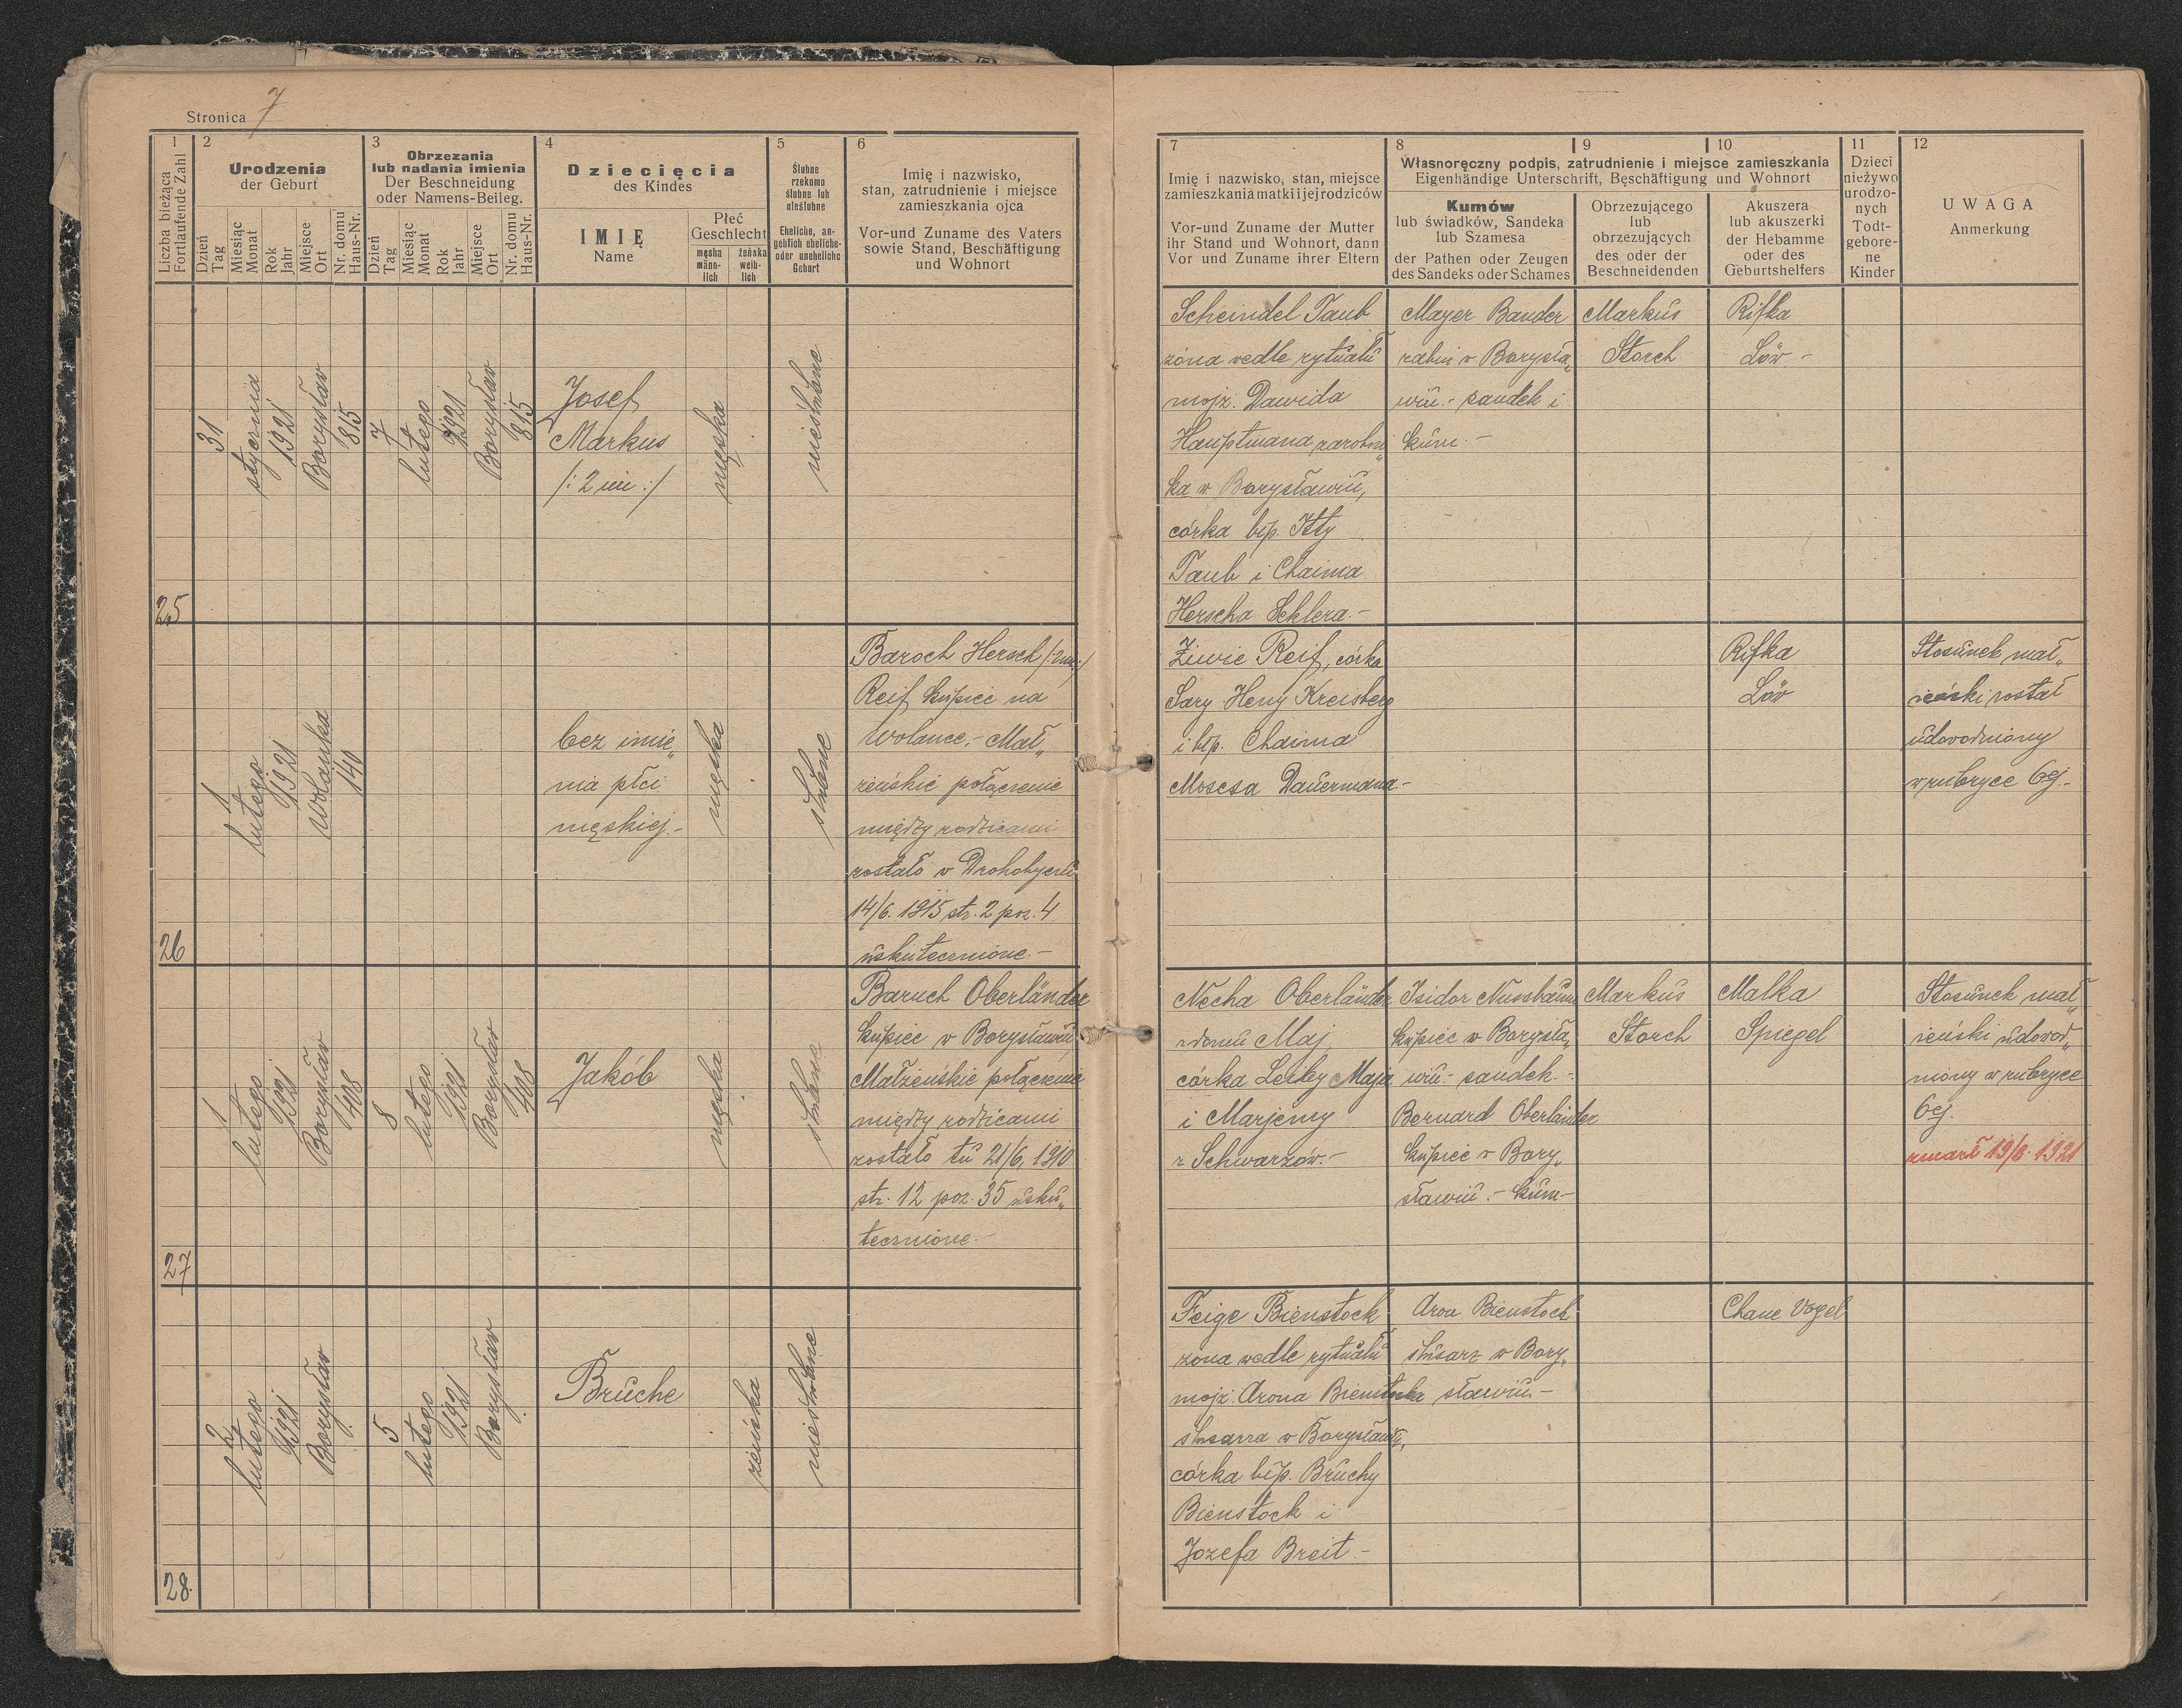 Stronica 7
1
Liczba bieżąca
Fortlaufende Zahl
2
Urodzenia
der Geburt
Dzień
Tag
Miesiąc
Monat
Rok
Jahr
Miejsce
Ort
Nr. domu
Haus-Nr.
3
Obrzezania
lub nadania imienia
Der Beschneidung
oder Namens-Beileg.
Dzień
Tag
Miesiąc
Monat
Rok
Jahr
Miejsce
Ort
Nr. domu
Haus-Nr.
4
Dziecięcia
des Kindes
IMIĘ
Name
Płeć
Geschlecht
męska
männ-
lich
żeńska
weib-
lich
5
Ślubne
rzekomo
ślubne lub
nieślubne
Eheliche, an-
geblich eheliche-
oder uneheliche
Geburt
6
Imię i nazwisko,
stan, zatrudnienie i miejsce
zamieszkania ojca
Vor-und Zuname des Vaters
sowie Stand, Beschäftigung
und Wohnort
7
Imię i nazwisko, stan, miejsce
zamieszkania matki i jej rodziców
Vor-und Zuname der Mutter
ihr Stand und Wohnort, dann
Vor und Zuname ihrer Eltern
8
9
10
Własnoręczny podpis, zatrudnienie i miejsce zamieszkania
Eigenhändige Unterschrift, Beschäftigung und Wohnort
Kumów
lub świadków, Sandeka
lub Szamesa
der Pathen oder Zeugen
des Sandeks oder Schames
Obrzezującego
lub
obrzezujących
des oder der
Beschneidenden
Akuszera
lub akuszerki
der Hebamme
oder des
Geburtshelfers
11
Dzieci
nieżywo
urodzo-
nych
Todt-
gebore-
ne
Kinder
12
UWAGA
Anmerkung
25
31
stycznia
1921
Borysław
815
7
lutego
1921
Borysław
815
Josef
Markus
/: 2 im :/
męska
nieślubne
Scheindel Taub
żona wedle rytuału
mojż. Dawida
Hauptmana zarobni„
ka w Borysławiu,
córka błp. Itty
Taub i Chaima
Herscha Seklera.-
Mayer Bander
rabin w Borysła„
wiu.- sandek i
kum.-
Markus
Storch
Rifka
Löw -
26
1
lutego
1921
Wolanka
140
bez imie„
nia płci
męskiej.-
męska
ślubne
Baroch Hersch /:2im:/
Reif kupiec na
Wolance.- Mał„
żeńskie połączenie
między rodzicami
zostało w Drohobyczu
14/6. 1915 str. 2 poz. 4
uskutecznione.-
Ziwie Reif, córka
Sary Heny Kreisberg
i błp. Chaima
Mosesa Dauermana-
Rifka
Löw
Stosunek mał„
żeński został
udowodniony
w rubryce 6ej.-
27
1
lutego
1921
Borysław
408
8
lutego
1921
Borysław
408
Jakób
męska
ślubne
Baruch Oberländer
kupiec w Borysławiu
Małżeńskie połączenie
między rodzicami
zostało tu 21/6. 1910
str. 12 poz. 35 usku„
tecznione.-
Necha Oberländer
zdomu Maj
córka Leiby Maja
i Marjemy
z Schwarzów.-
Isidor Nussbaum
kupiec w Borysła„
wiu - sandek.-
Bernard Oberländer
kupiec w Bory„
sławiu.- kum-
Markus
Storch
Malka
Spiegel
Stosunek mał„
żeński udowod„
niony w rubryce
6ej.
zmarł 19/8. 1921
28.
2
lutego
1921
Borysław
5
lutego
1921
Borysław
Bruche
żeńska
nieślubne
Feige Bienstock
żona wedle rytuału
mojż. Arona Bienstocka
ślusarza w Borysławiu,
córka błp. Bruchy
Bienstock i
Jozefa Breit.-
Aron Bienstock
ślusarz w Bory„
sławiu.-
Chane Vogel